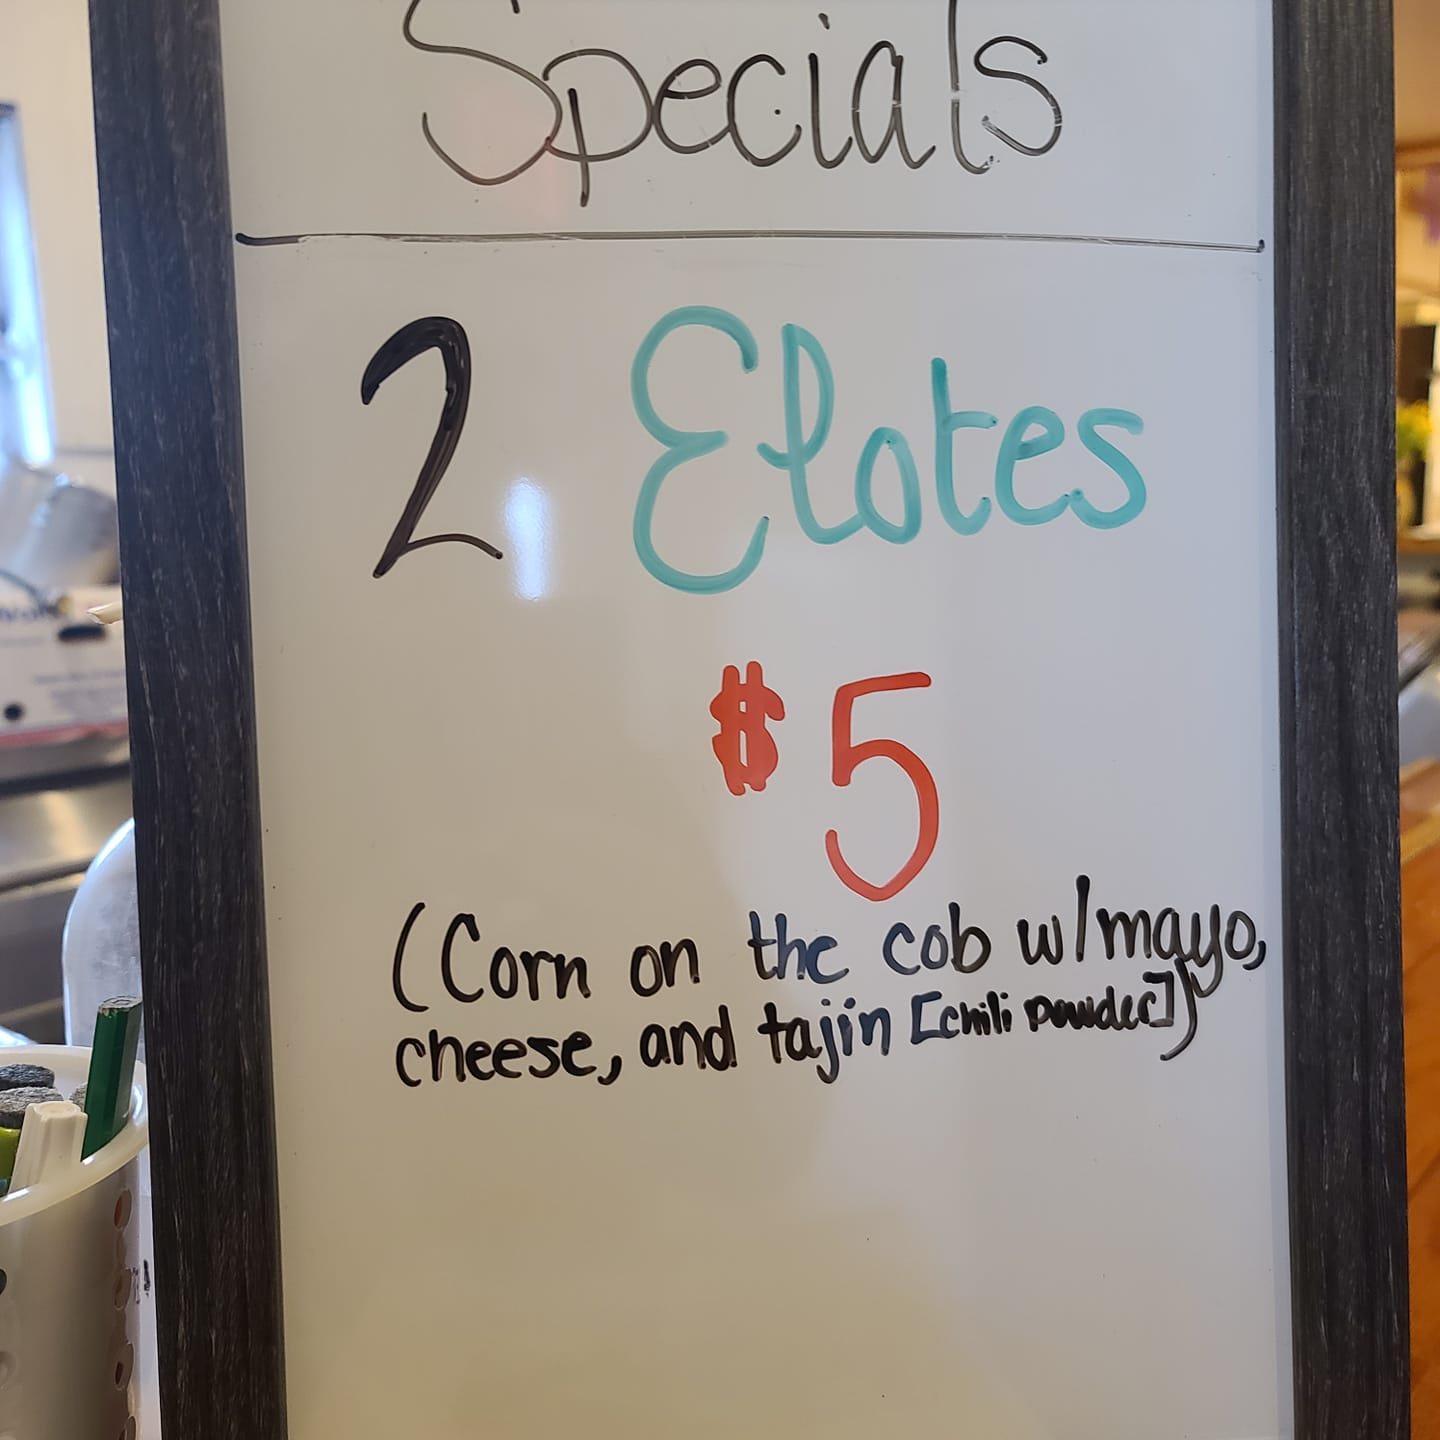 Specials
2 Elotes
$5
(Corn on the cob w/mayo,
cheese, and tajin [chili powder])